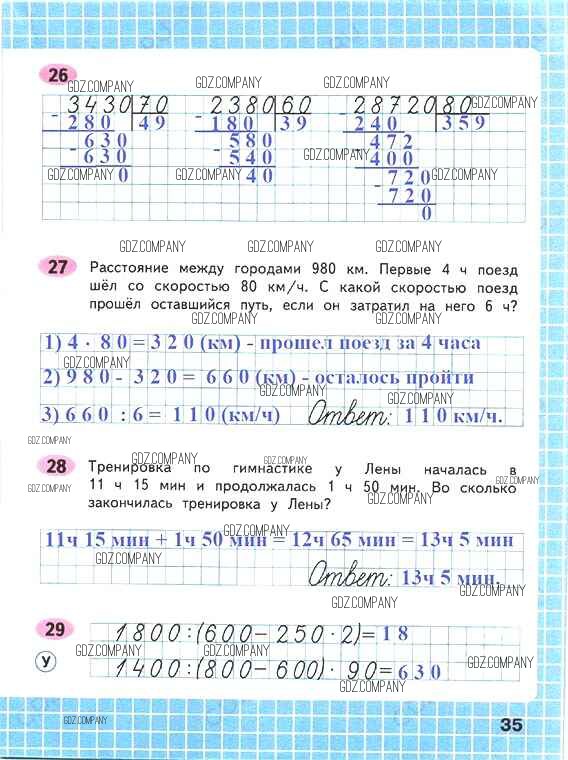 26
GDZ.COMPANY GDZ.COMPANY GDZ.COMPANY
3430 70 2380 60 28720 80 GDZ.COMPANY
- 280 49 - 180 39 - 240 359
- 630 - 580 GDZ.COMPANY - 472
630 540 400
GDZ.COMPANY 0 GDZ.COMPANY 40 - 720 GDZ.COMPANY
720
0
GDZ.COMPANY GDZ.COMPANY GDZ.COMPANY
27 Расстояние между городами 980 км. Первые 4 ч поезд
шёл со скоростью 80 км/ч. С какой скоростью поезд
прошёл оставшийся путь, если он затратил на него 6 ч?
GDZ.COMPANY GDZ.COMPANY GDZ.COMPANY
1) 4 · 80 = 320 (км) - прошел поезд за 4 часа
GDZ.COMPANY GDZ.COMPANY
2) 980 - 320 = 660 (км) - осталось пройти
GDZ.COMPANY GDZ.COMPANY
3) 660 : 6 = 110 (км/ч) Ответ: 110 км/ч.
GDZ.COMPANY
GDZ.COMPANY GDZ.COMPANY
28 Тренировка по гимнастике у Лены началась в
11 ч 15 мин и продолжалась 1 ч 50 мин. Во сколько
GDZ.COMPANY GDZ.COMPANY GDZ.COMPANY
закончилась тренировка у Лены?
GDZ.COMPANY
11ч 15 мин + 1ч 50 мин = 12ч 65 мин = 13ч 5 мин
GDZ.COMPANY GDZ.COMPANY
Ответ: 13ч 5 мин.
GDZ.COMPANY
29 1800:(600-250·2)= 18
У GDZ.COMPANY GDZ.COMPANY GDZ.COMPANY
1400:(800-600)·90= 630
GDZ.COMPANY
GDZ.COMPANY
35